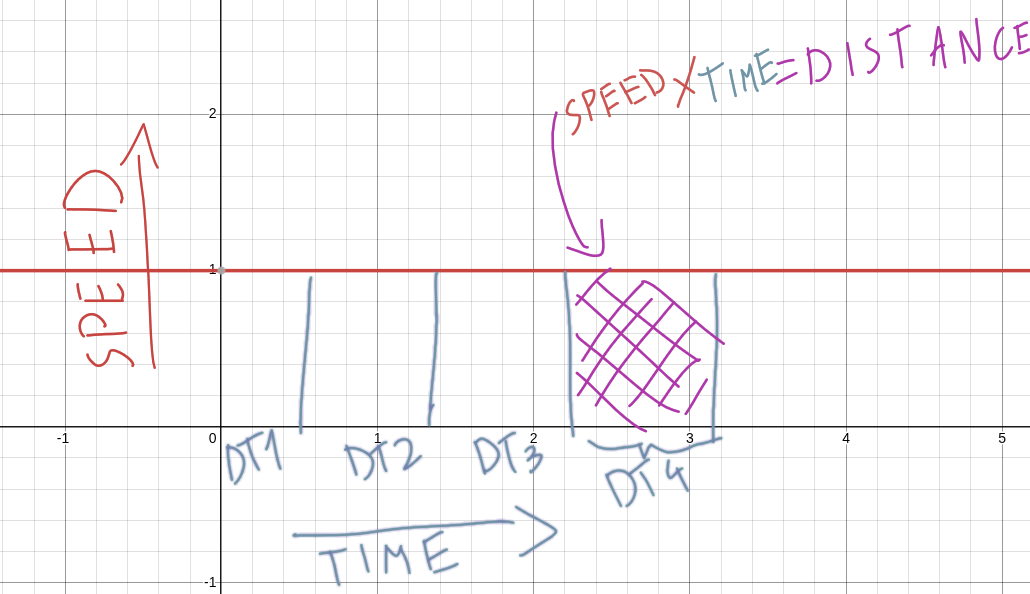 SPEED X TIME = DISTANCE
2
SPEED
1
-1 0 1 2 3 4 5
DT1 DT2 DT3 DT4
TIME
-1